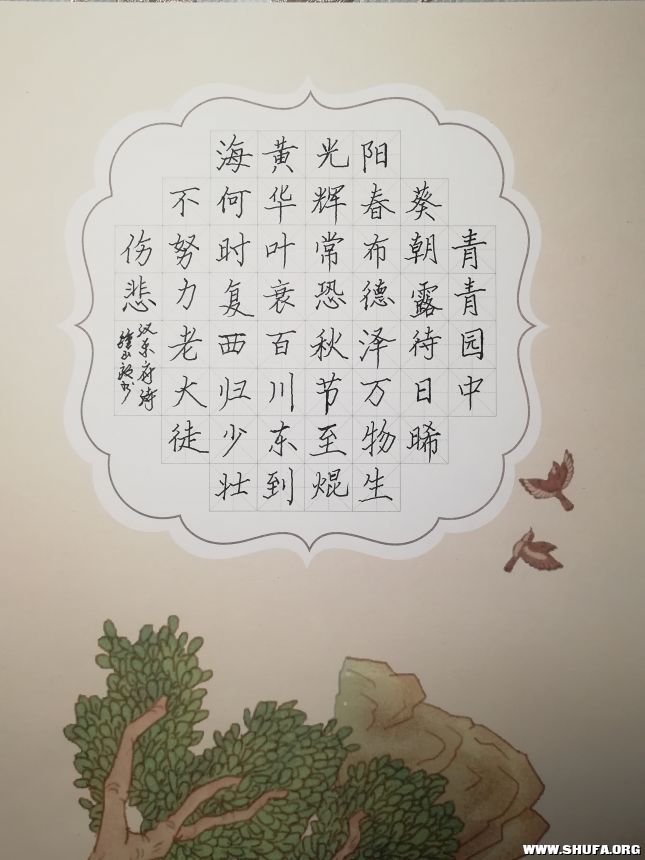 青青园中
葵朝露待日晞
阳春布德泽万物生
光辉常恐秋节至焜
黄华叶衰百川东到
海何时复西归少壮
不努力老大徒
伤悲
汉乐府诗
书
WWW.SHUFA.ORG